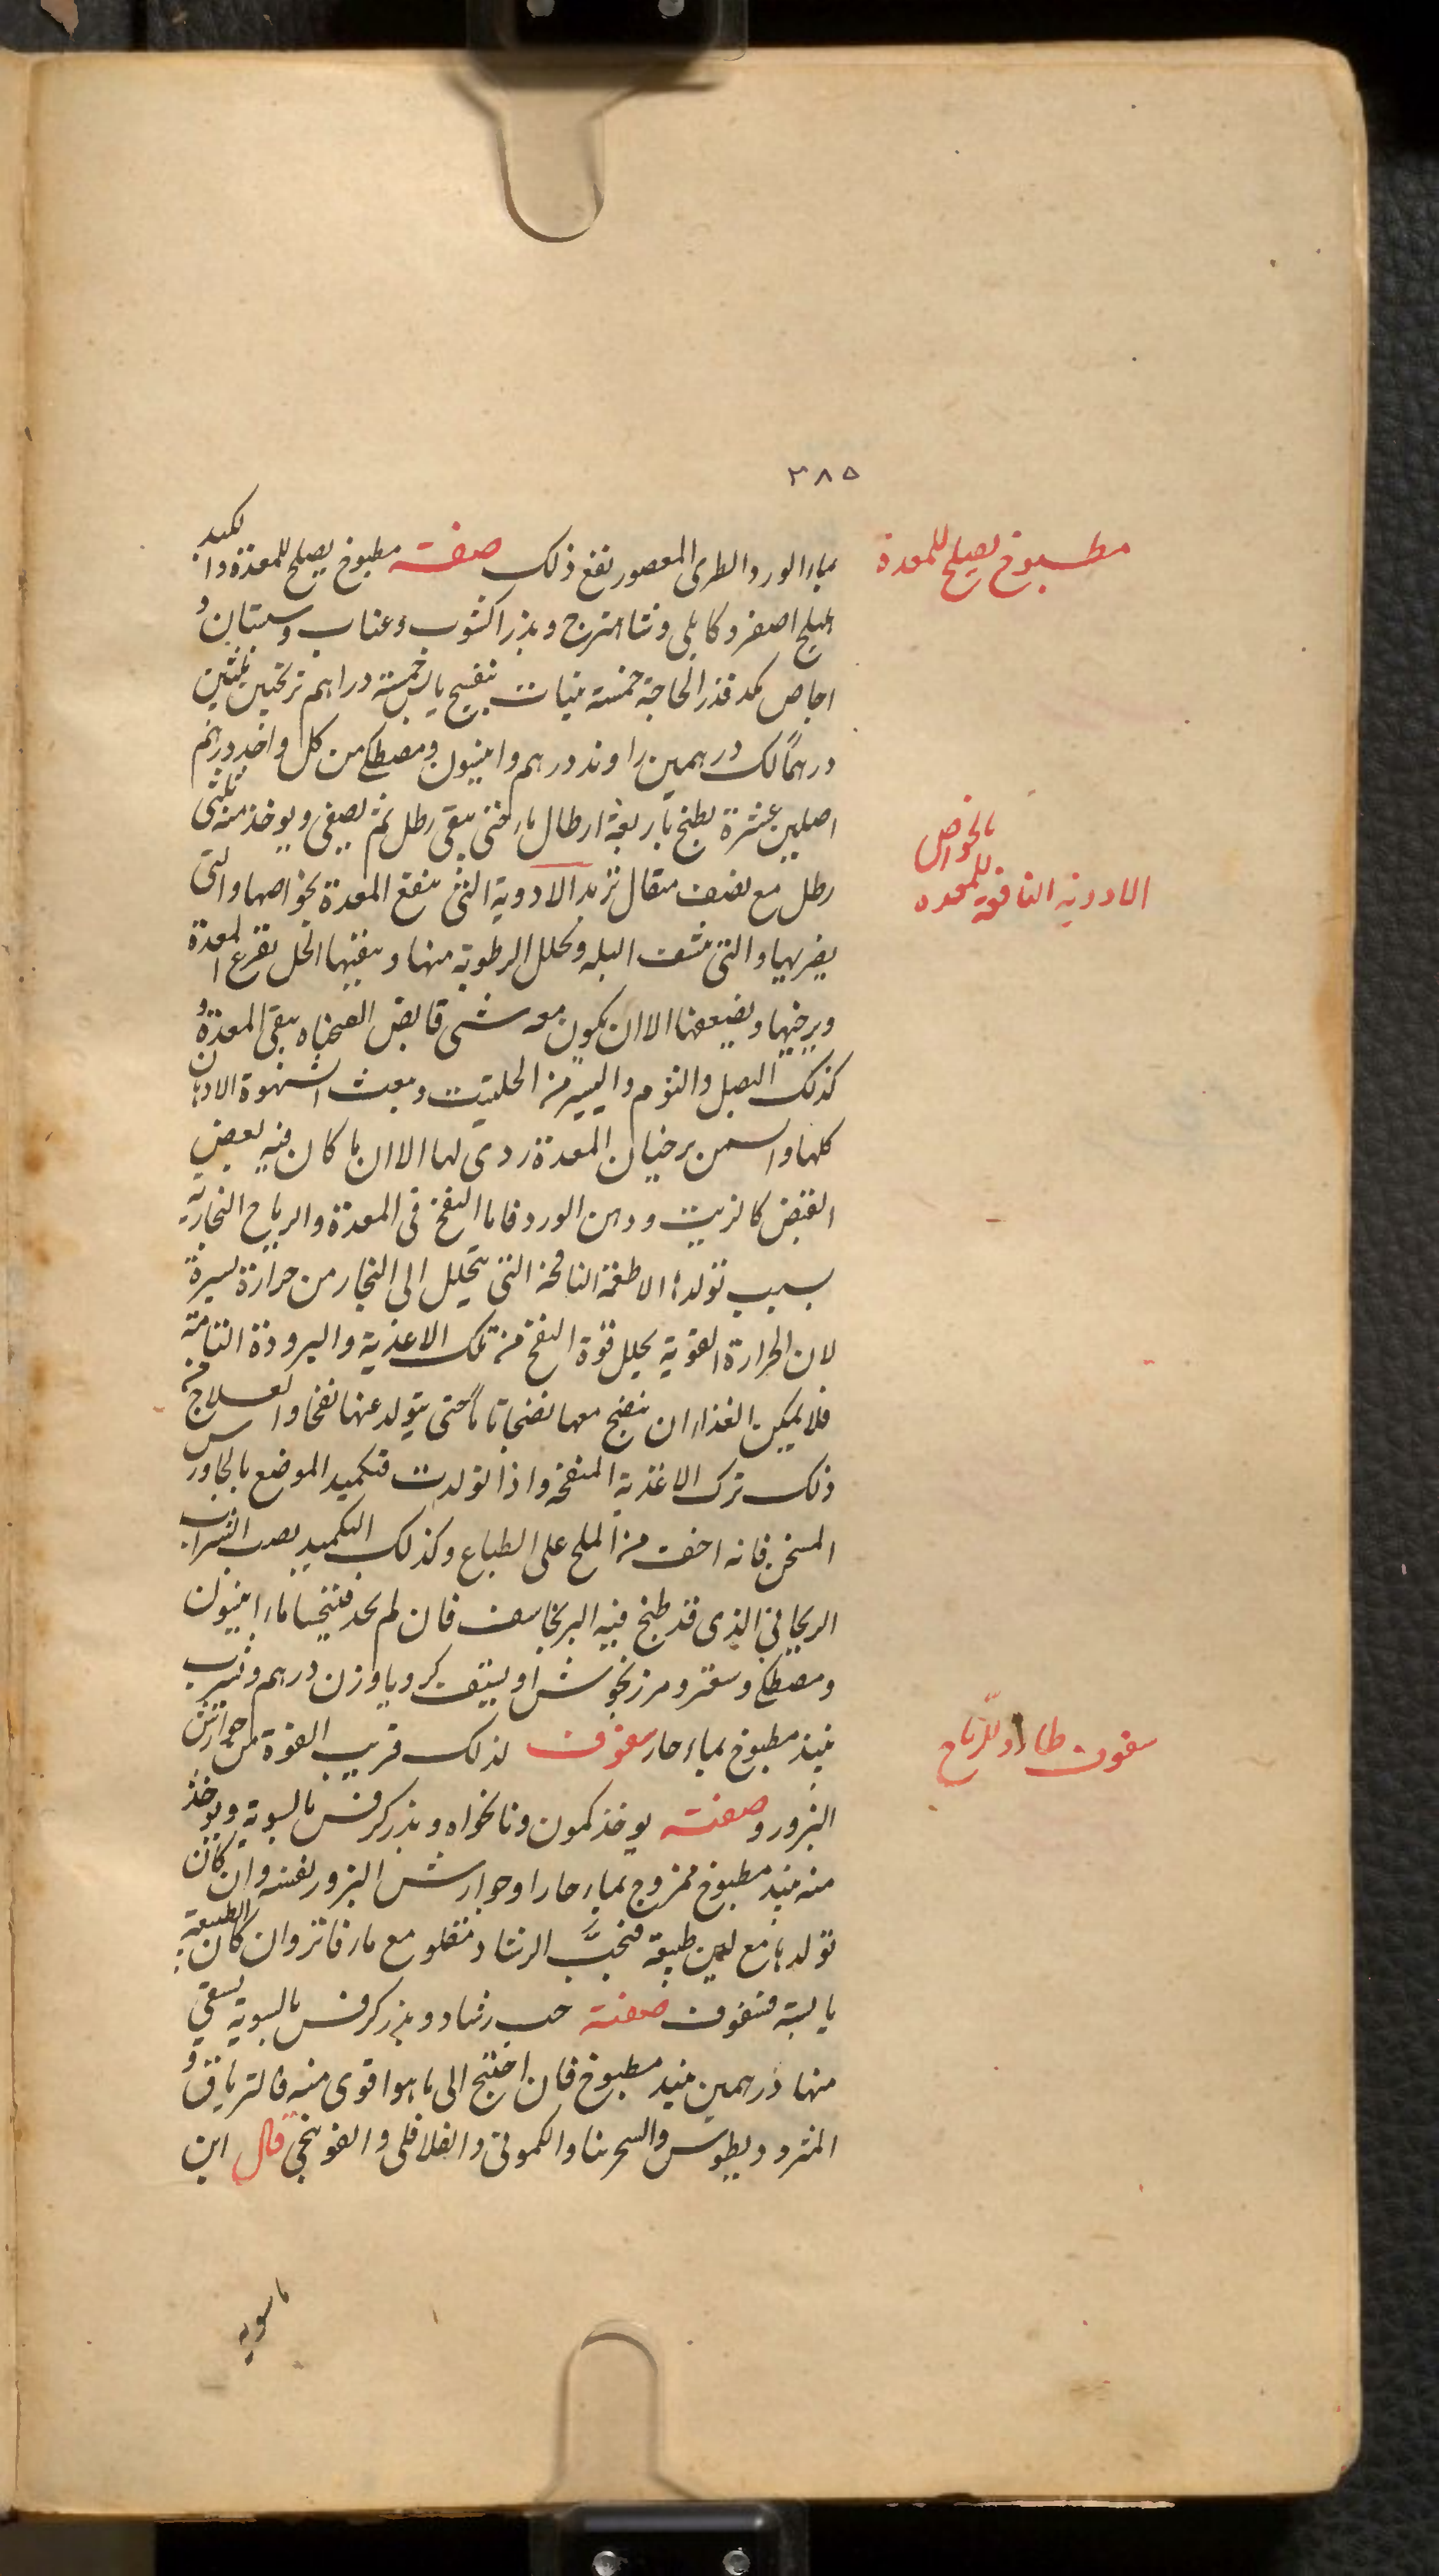 ٣٨٥
بماء الورد الطرى المعصور نفع ذلك صفت مطبوخ يصلح للمعدة والكبد
اهليلج اصفر وكابلى وشاهترج وبذر اكشوت وعناب وسبستان و
اجاص كمد قدر الحاجة خمسة بنفسج يابس خمسة دراهم ترنجبين ثلثين
درهما لك درهمين راوند درهم وانيسون ومصطكى من كل واحد درهم
اصلين عشرة يطبخ باربعة ارطال ماء حتى يبقى رطل ثم يصفى ويوخذ منه ثلثى
رطل مع نصف مثقال تربد الادوية التى ينفع المعدة بخواصها والتى
يضر بها والتى ينشف البله ويحلل الرطوبة منها وينقيها الخل يقرع المعدة
ويرخيها ويضيعها الا ان يكون معه شى قابض الصحناه ينقى المعدة و
كذلك البصل والثوم واليسير من الحلتيت ويبعث الشهوة الادهان
كلها والسمن يرخيان المعدة ردى لها الا ان ما كان فيه بعض
القبض كالزيت ودهن الورد فاما النفخ فى المعدة والرياح البخارية
سبب تولدها الاطعمة النافخة التى يتحلل الى البخار من حرارة يسيرة
لان الحرارة القوية يحلل قوة النفخ من تلك الاغذية والبرودة التامة
فلا يمكن الغذاء ان ينضج معها نضجا تاما حتى يتولد عنها نفخا والعلاج من
ذلك ترك الاغذية المنفخة واذا تولدت فتكميد الموضع بالجاورس
المسخن فانه اخف من الملح على الطباع وكذلك التكميد بصب الشراب
الريحانى الذى قد طبخ فيه البرنجاسف فان لم يحد فيتحسا ماء انيسون
ومصطكى وسعتر ومرزنجوش او يستف كرويا وزن درهم وشرب
نبيذ مطبوخ بماء حار سفوف لذلك قريب القوة من جوارش
البزور وصفته يوخذ كمون ونانخواه وبذر كرفس بالسوية ويوخذ
منه نبيذ مطبوخ ممزوج بماء حار او جوارش البزور نفسه وان كان
تولدها مع لين طبيعة فبحب الرشاد مقلو مع ماء فاتر وان كان الطبيعة
يابسة فسفوف صفته حب رشاد وبذر كرفس بالسوية يسقى
منها درهمين نبيذ مطبوخ فان احتيج الى ما هو اقوى منه فالترياق و
المثروديطوس والسجرينا والكمونى والفلافلى والفوتنجى قال ابن
ماسويه
مطبوخ يصلح للمعدة
الادوية النافعة للمعده بالخواص
سفوف للرياح